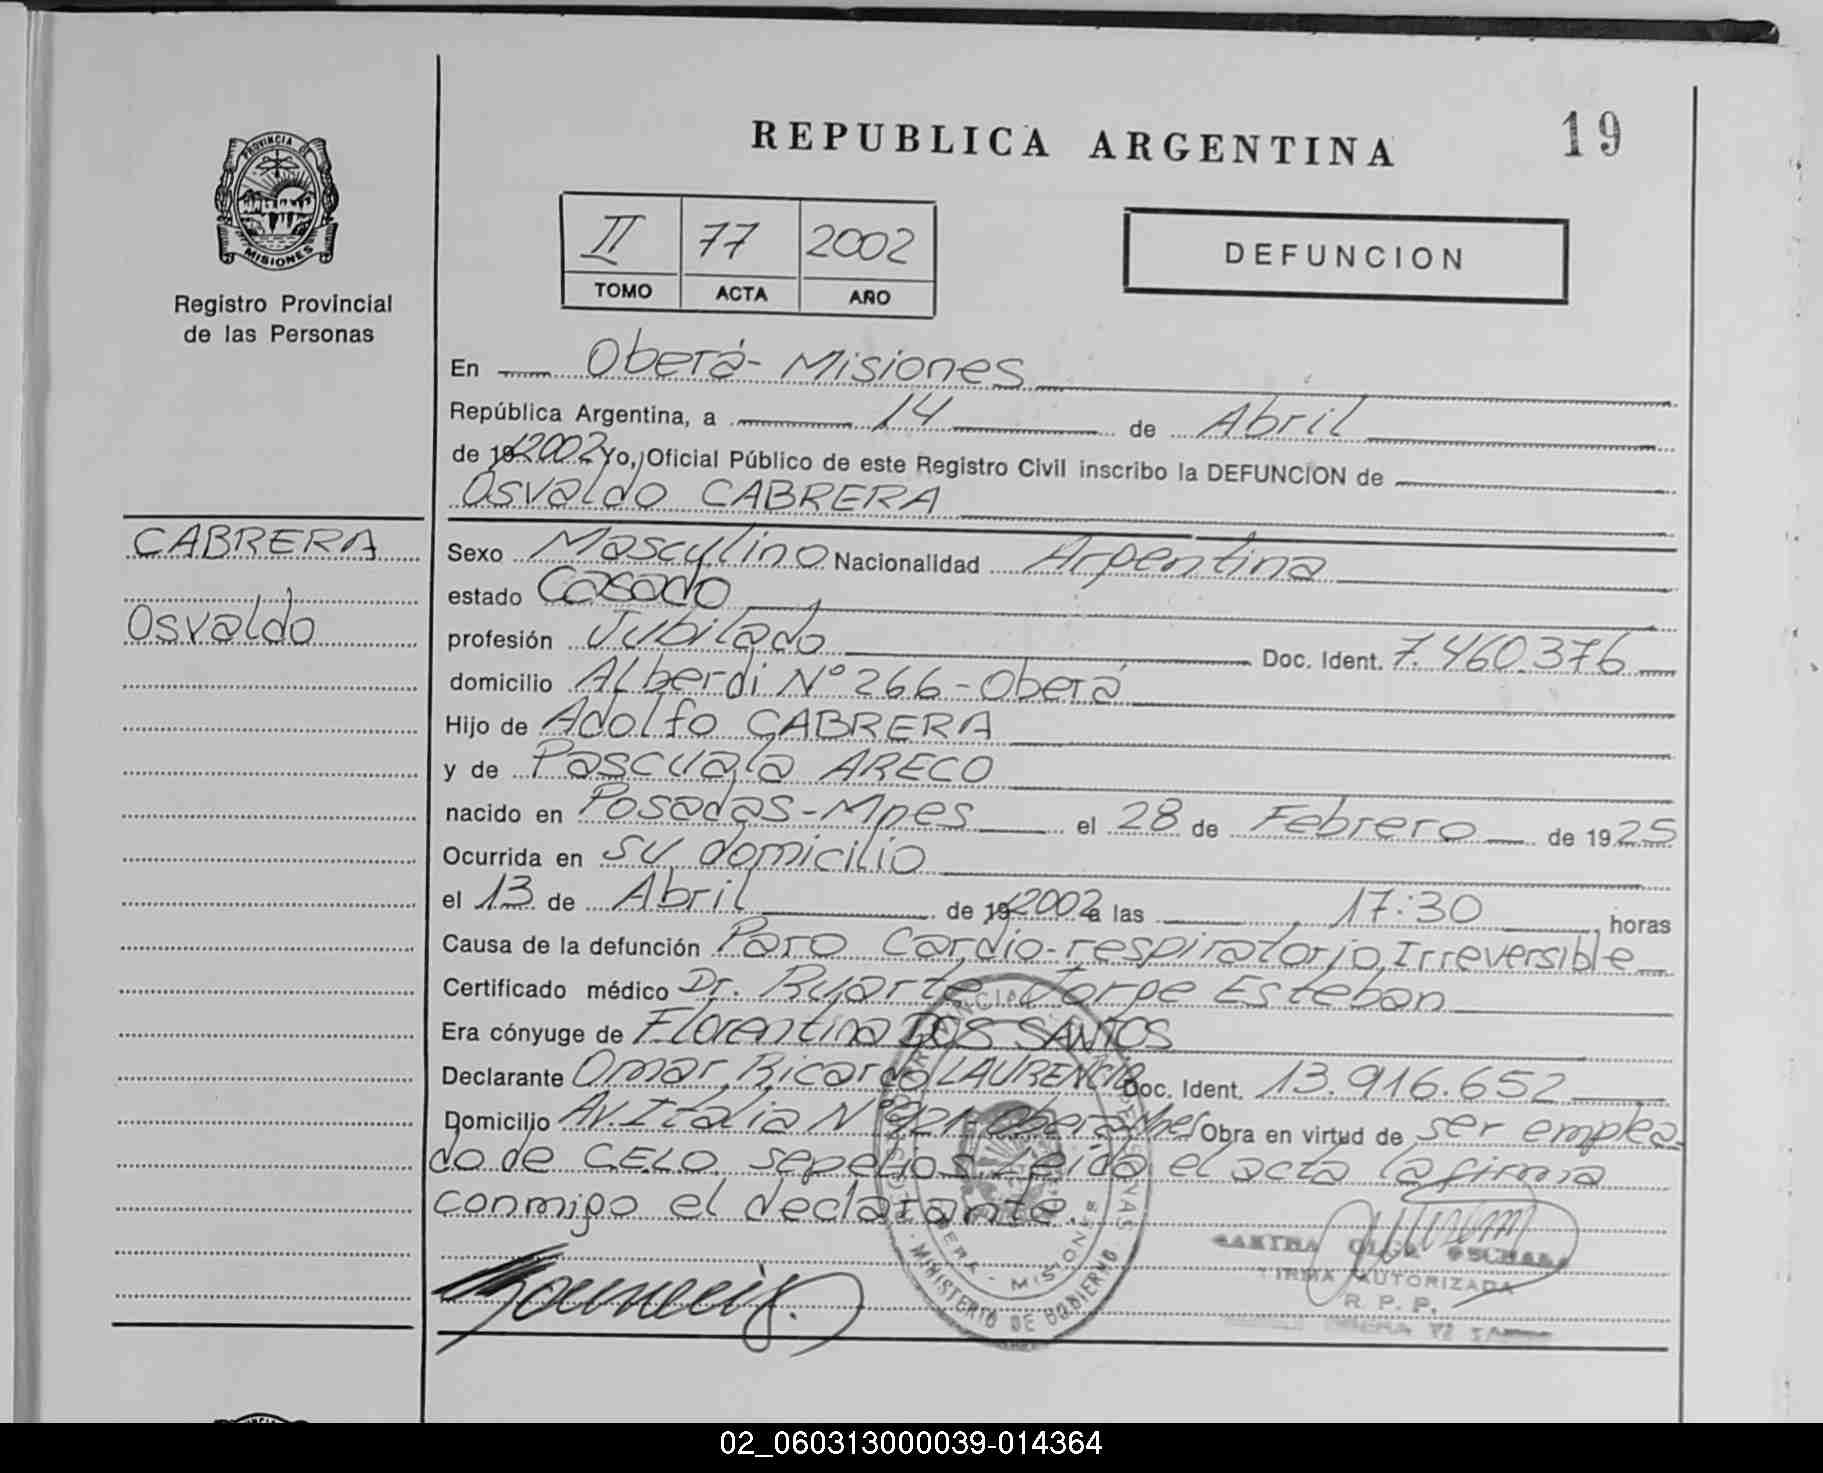 REPUBLICA ARGENTINA
19
PROVINCIA DE
MISIONES
Registro Provincial
de las Personas
II 77 2002
TOMO ACTA AÑO
DEFUNCION
En Oberá - Misiones
República Argentina, a 14 de Abril
de 19 2002 Yo, Oficial Público de este Registro Civil inscribo la DEFUNCION de
Osvaldo CABRERA
CABRERA
Osvaldo
Sexo Masculino Nacionalidad Argentina
estado Casado
profesión Jubilado Doc. Ident. 7.460.376
domicilio Alberdi Nº 266 - Oberá
Hijo de Adolfo CABRERA
y de Pascuala ARECO
nacido en Posadas - Mnes el 28 de Febrero de 1925
Ocurrida en su domicilio
el 13 de Abril de 19 2002 a las 17:30 horas
Causa de la defunción Paro Cardio-respiratorio Irreversible
Certificado médico Dr. Ryarte Jorge Esteban
Era cónyuge de Florentina DOS SANTOS
Declarante Omar Ricardo LAURENCIO Doc. Ident. 13.916.652
Domicilio Av. Italia Nº 921 - Oberá Mnes Obra en virtud de ser emplea
do de C.E.L.O. sepelios. Leída el acta la firma
conmigo el declarante.
MINISTERIO DE GOBIERNO
OBERA - MISIONES
OLGA
FIRMA AUTORIZADA
R. P. P.
02_060313000039-014364